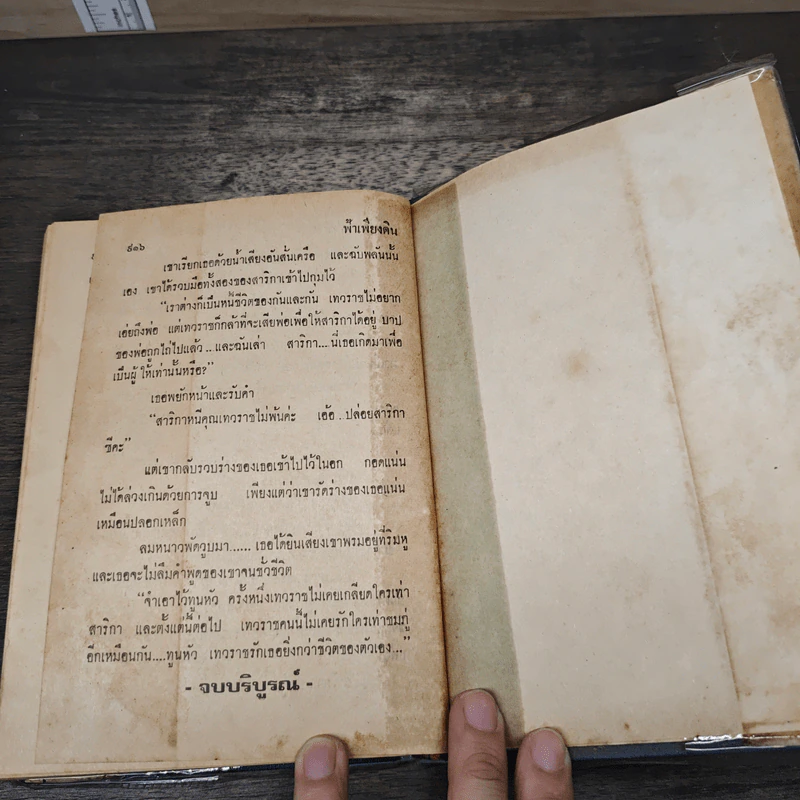 ฟ้าเพียงดิน
๕๑๖
เขาเรียกเธอด้วยน้ำเสียงอันสั่นเครือ และฉับพลันนั้น
เอง เขาได้รวบมือทั้งสองของสาริกาเข้าไปกุมไว้
“เราต่างก็เป็นหนี้ชีวิตของกันและกัน เทวราชไม่อยาก
เอ่ยถึงพ่อ แต่เทวราชก็กล้าที่จะเสียพ่อเพื่อให้สาริกาได้อยู่ บาป
ของพ่อถูกไถ่ไปแล้ว..และฉันเล่า สาริกา...นี่เธอเกิดมาเพื่อ
เป็นผู้ให้เท่านั้นหรือ?”
เธอพยักหน้าและรับคำ
“สาริกาหนีคุณเทวราชไม่พ้นค่ะ เอ้อ..ปล่อยสาริกา
ซีคะ”
แต่เขากลับรวบร่างของเธอเข้าไปไว้ในอก กอดแน่น
ไม่ได้ล่วงเกินด้วยการจูบ เพียงแต่ว่าเขารัดร่างของเธอแน่น
เหมือนปลอกเหล็ก
ลมหนาวพัดวูบมา...... เธอได้ยินเสียงเขาพรมอยู่ที่ริมหู
และเธอจะไม่ลืมคำพูดของเขาจนชั่วชีวิต
“จำเอาไว้ทูนหัว ครั้งหนึ่งเทวราชไม่เคยเกลียดใครเท่า
สาริกา และตั้งแต่นี้ต่อไป เทวราชคนนี้ไม่เคยรักใครเท่าชมภู่
อีกเหมือนกัน....ทูนหัว เทวราชรักเธอยิ่งกว่าชีวิตของตัวเอง...”
- จบบริบูรณ์ -